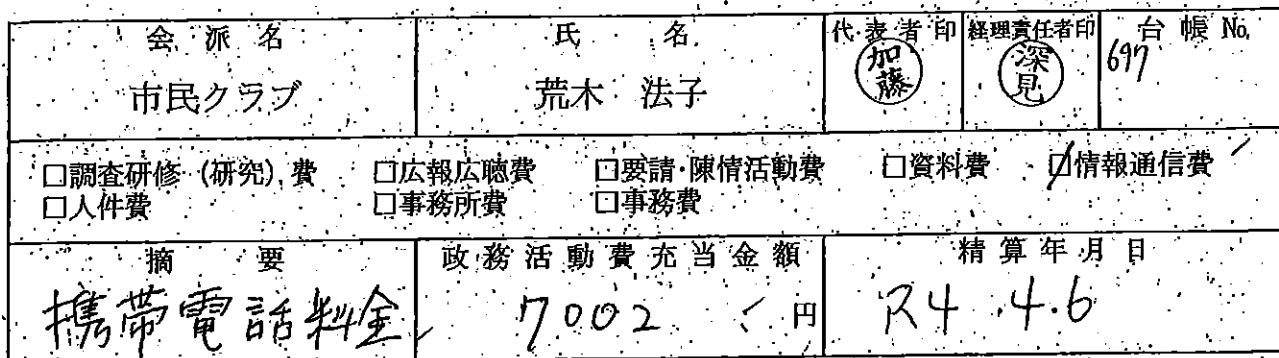 会派名 氏名 代表者印 経理責任者印 台帳No.
市民クラブ 荒木 法子 加藤 深見 697
□調査研修(研究)費 □広報広聴費 □要請・陳情活動費 □資料費 ☑情報通信費
□人件費 □事務所費 □事務費
摘要 政務活動費充当金額 精算年月日
携帯電話料金 7002 円 R4.4.6